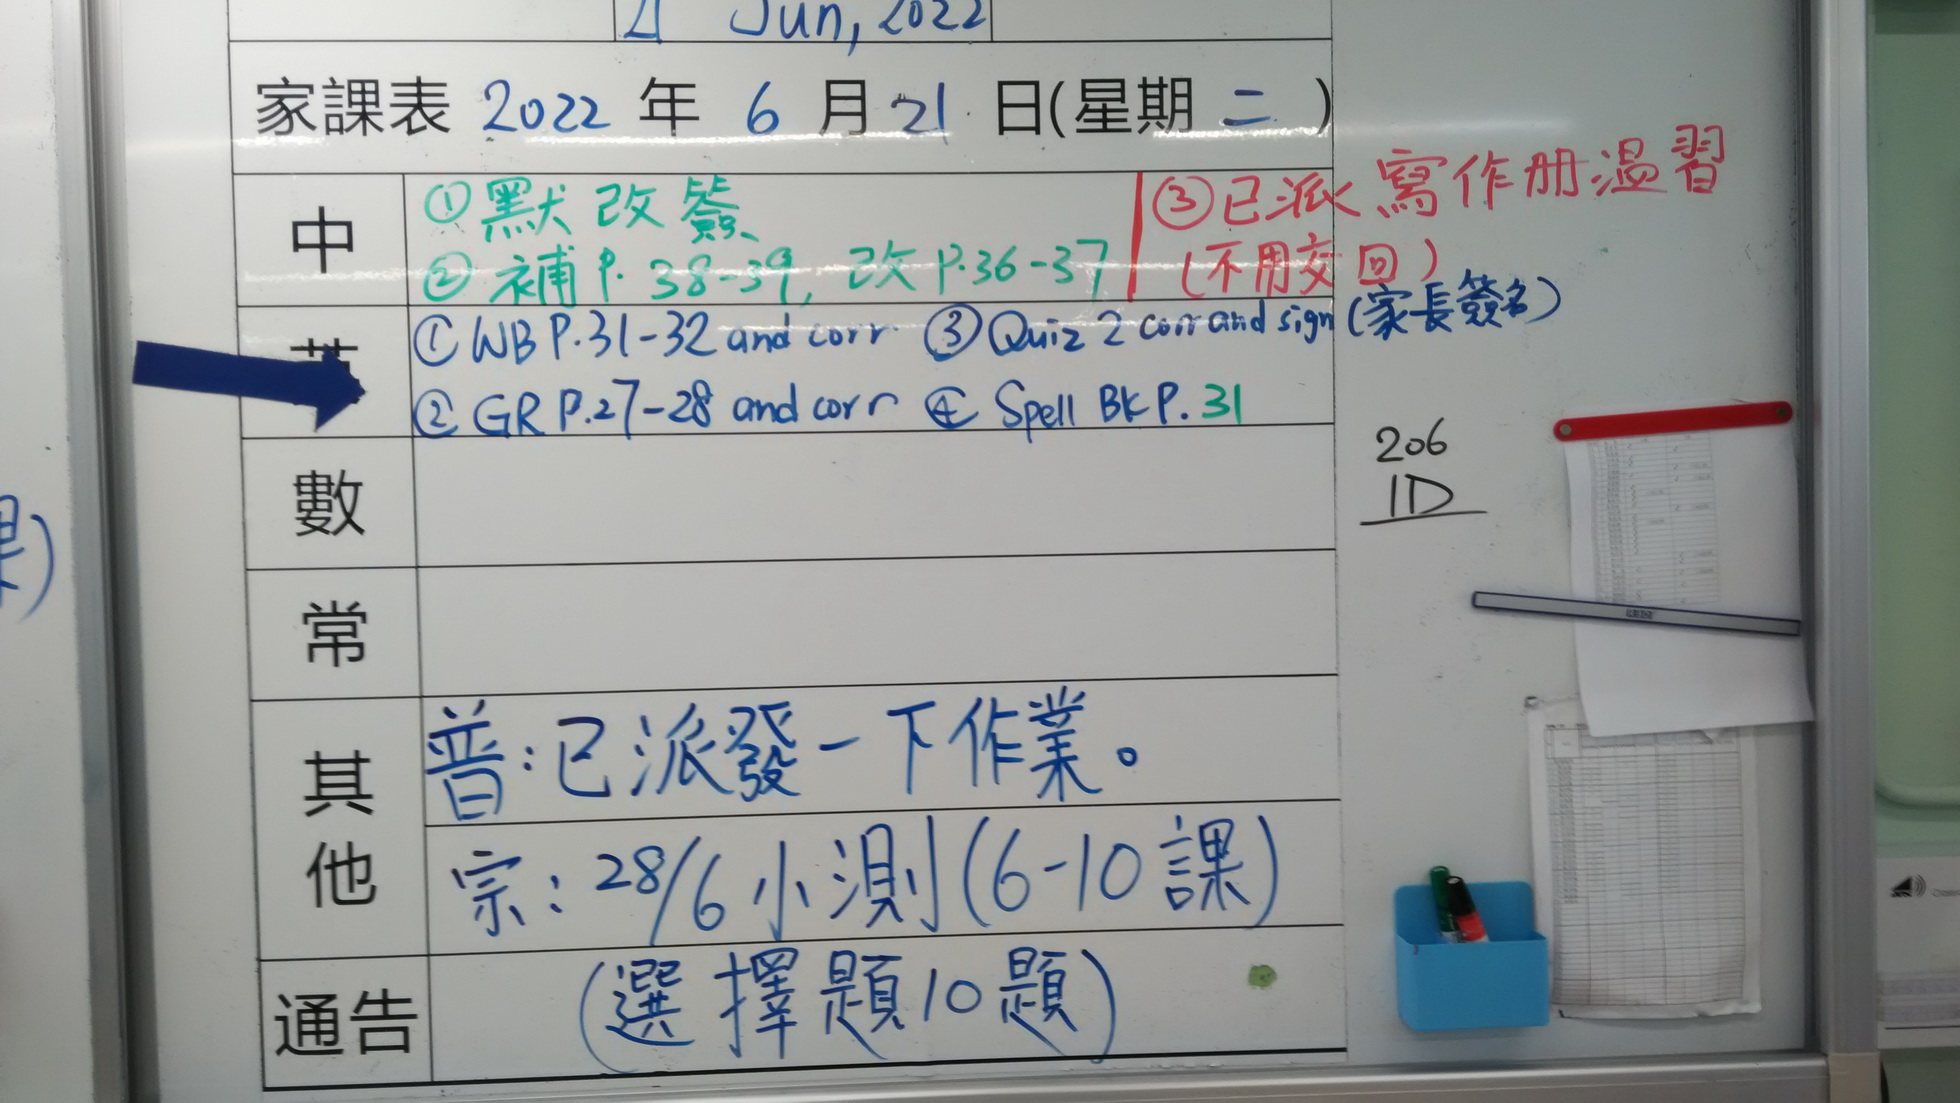 21 Jun, 2022
家課表 2022 年 6 月 21 日(星期 二 )
中
①默改簽
②補P.38-39, 改P.36-37
③已派寫作册溫習
(不用交回)
①WB P.31-32 and corr ③Quiz 2 corr and sign (家長簽名)
②GR P.27-28 and corr ④Spell BK P.31
數
常
206
1D
其他
普:已派發一下作業。
宗:28/6小測(6-10課)
通告
(選擇題10題)
課)